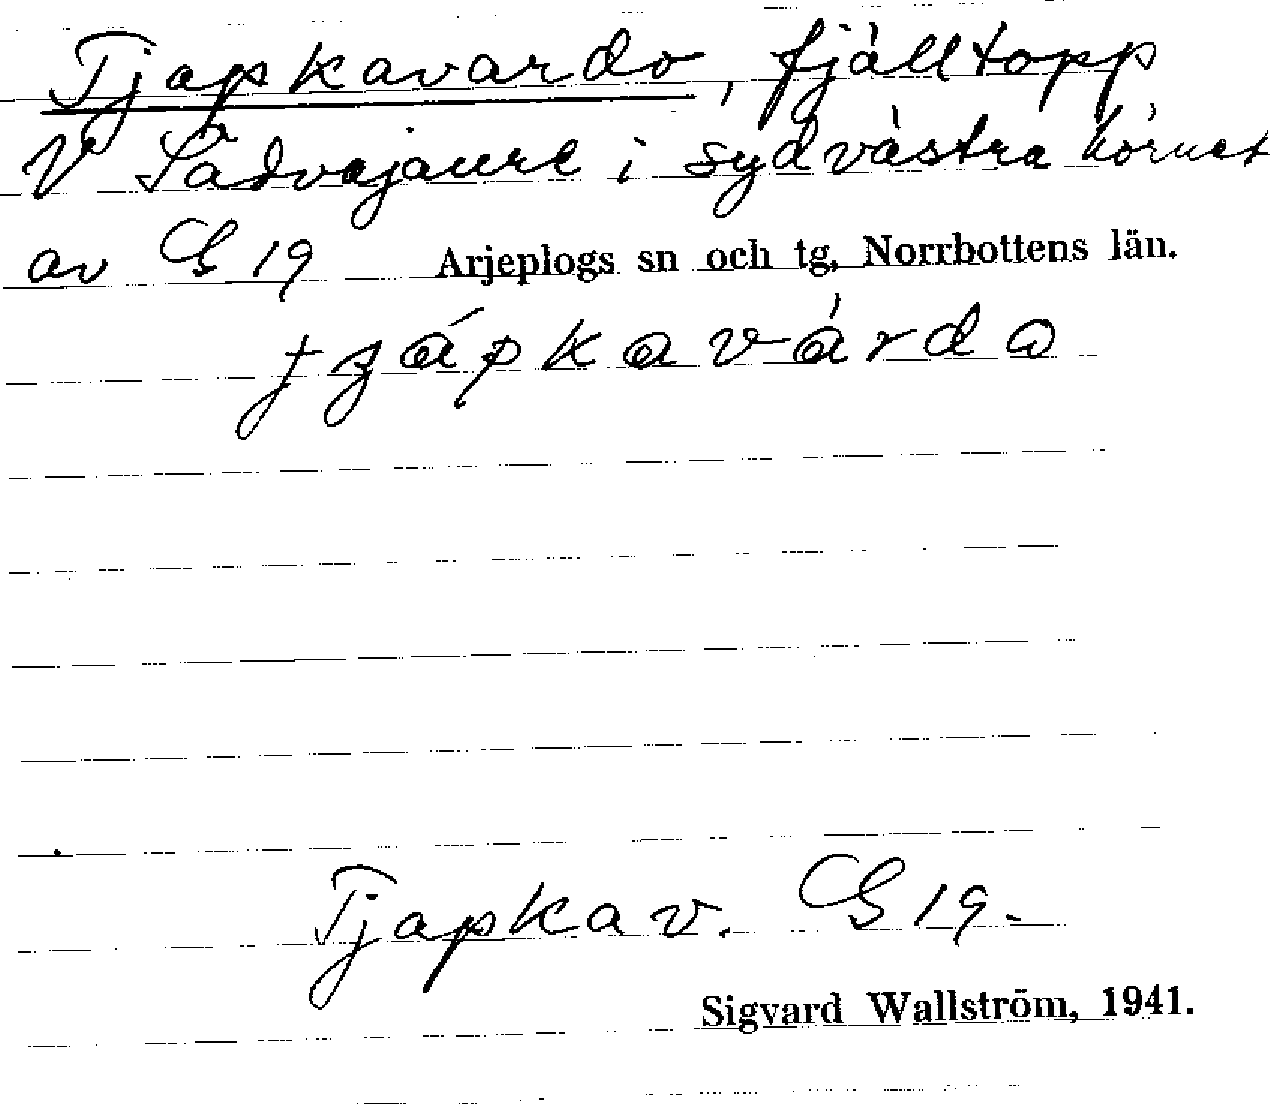 Tjapkavardo, fjälltopp
V Sädvajaure i sydvästra hörnet
av G 19 Arjeplogs sn och tg, Norrbottens län.
Tjapkav. G 19.
Sigvard Wallström, 1941.